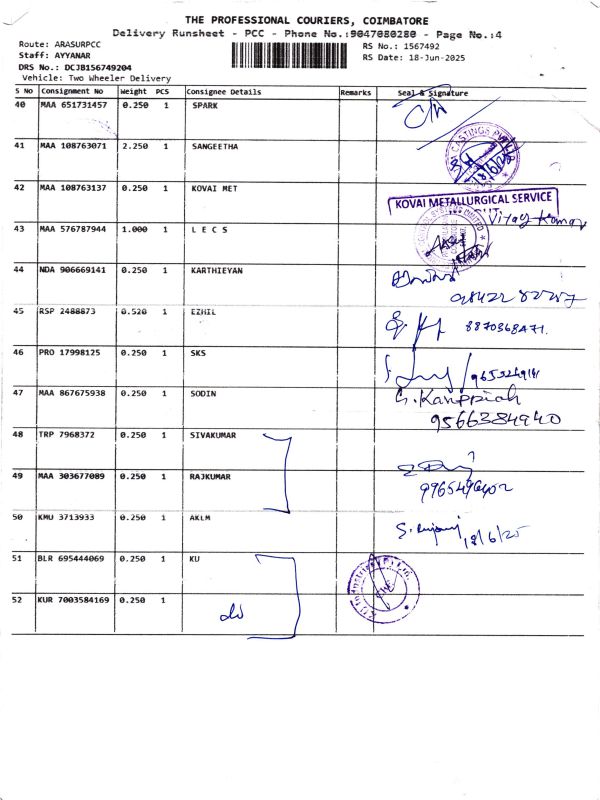 THE PROFESSIONAL COURIERS, COIMBATORE
Delivery Runsheet - PCC - Phone No.:9047080280 - Page No.:4
Route: ARASURPCC RS No.: 1567492
Staff: AYYANAR RS Date: 18-Jun-2025
DRS No.: DCJB156749204
Vehicle: Two Wheeler Delivery
S No Consignment No Weight PCS Consignee Details Remarks Seal & Signature
40 MAA 651731457 0.250 1 SPARK
41 MAA 108763071 2.250 1 SANGEETHA
CASTINGS
18/6/25
42 MAA 108763137 0.250 1 KOVAI MET
KOVAI METALLURGICAL SERVICE
Vijay Kumar
43 MAA 576787944 1.000 1 L E C S
44 NDA 906669141 0.250 1 KARTHIEYAN
45 RSP 2488873 0.520 1 EZHIL
8870368471.
46 PRO 17998125 0.250 1 SKS
47 MAA 867675938 0.250 1 SODIN
G. Karuppiah
9566384940
48 TRP 7968372 0.250 1 SIVAKUMAR
49 MAA 303677089 0.250 1 RAJKUMAR
9965496402
50 KMU 3713933 0.250 1 AKLM
18/6/25
51 BLR 695444069 0.250 1 KU
52 KUR 7003584169 0.250 1